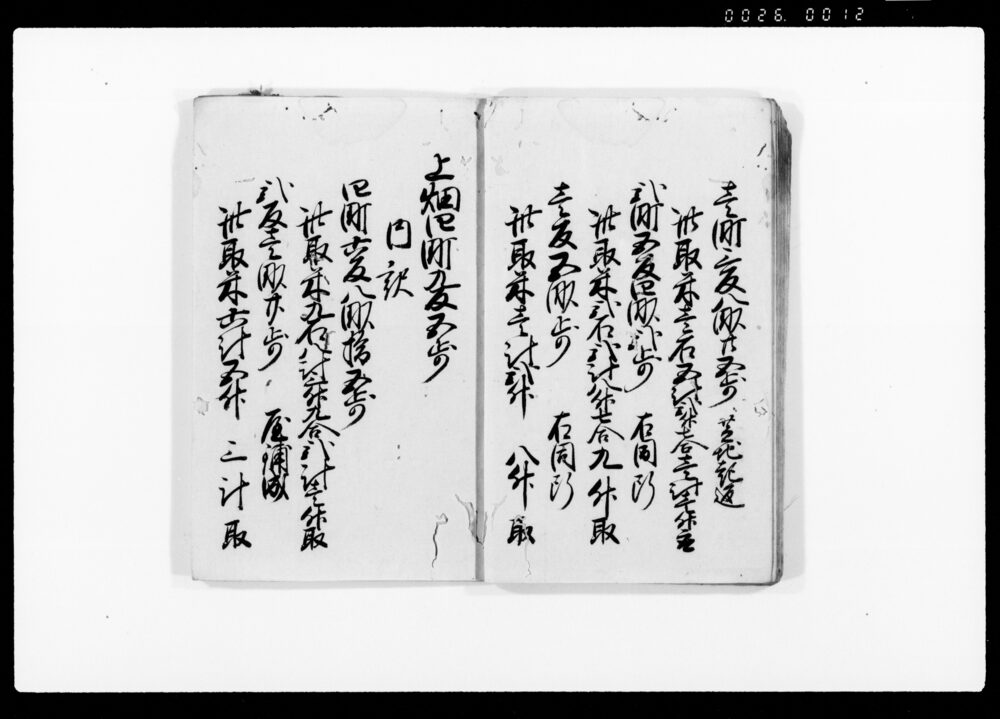 壱町二反八畝廿五歩 芝地起返
此取米壱石五斗
弐町五反四畝弐歩 右同断
此取米弐石弐斗八升七合 九升取
壱反五畝歩 右同断
此取米壱斗弐升 八升取
上畑四町九反五歩
内訳
四町六反八畝拾五歩
此取米九石八斗三升九合 弐斗壱升取
弐反壱畝廿歩
此取米六斗五升 三斗取
0026. 0012